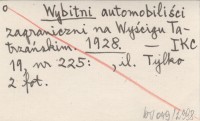 Wybitni automobiliści
zagraniczni na Wyścigu Ta-
trzańskim. 1928. — IKC
19, nr 225: , il. Tylko
2 fot.